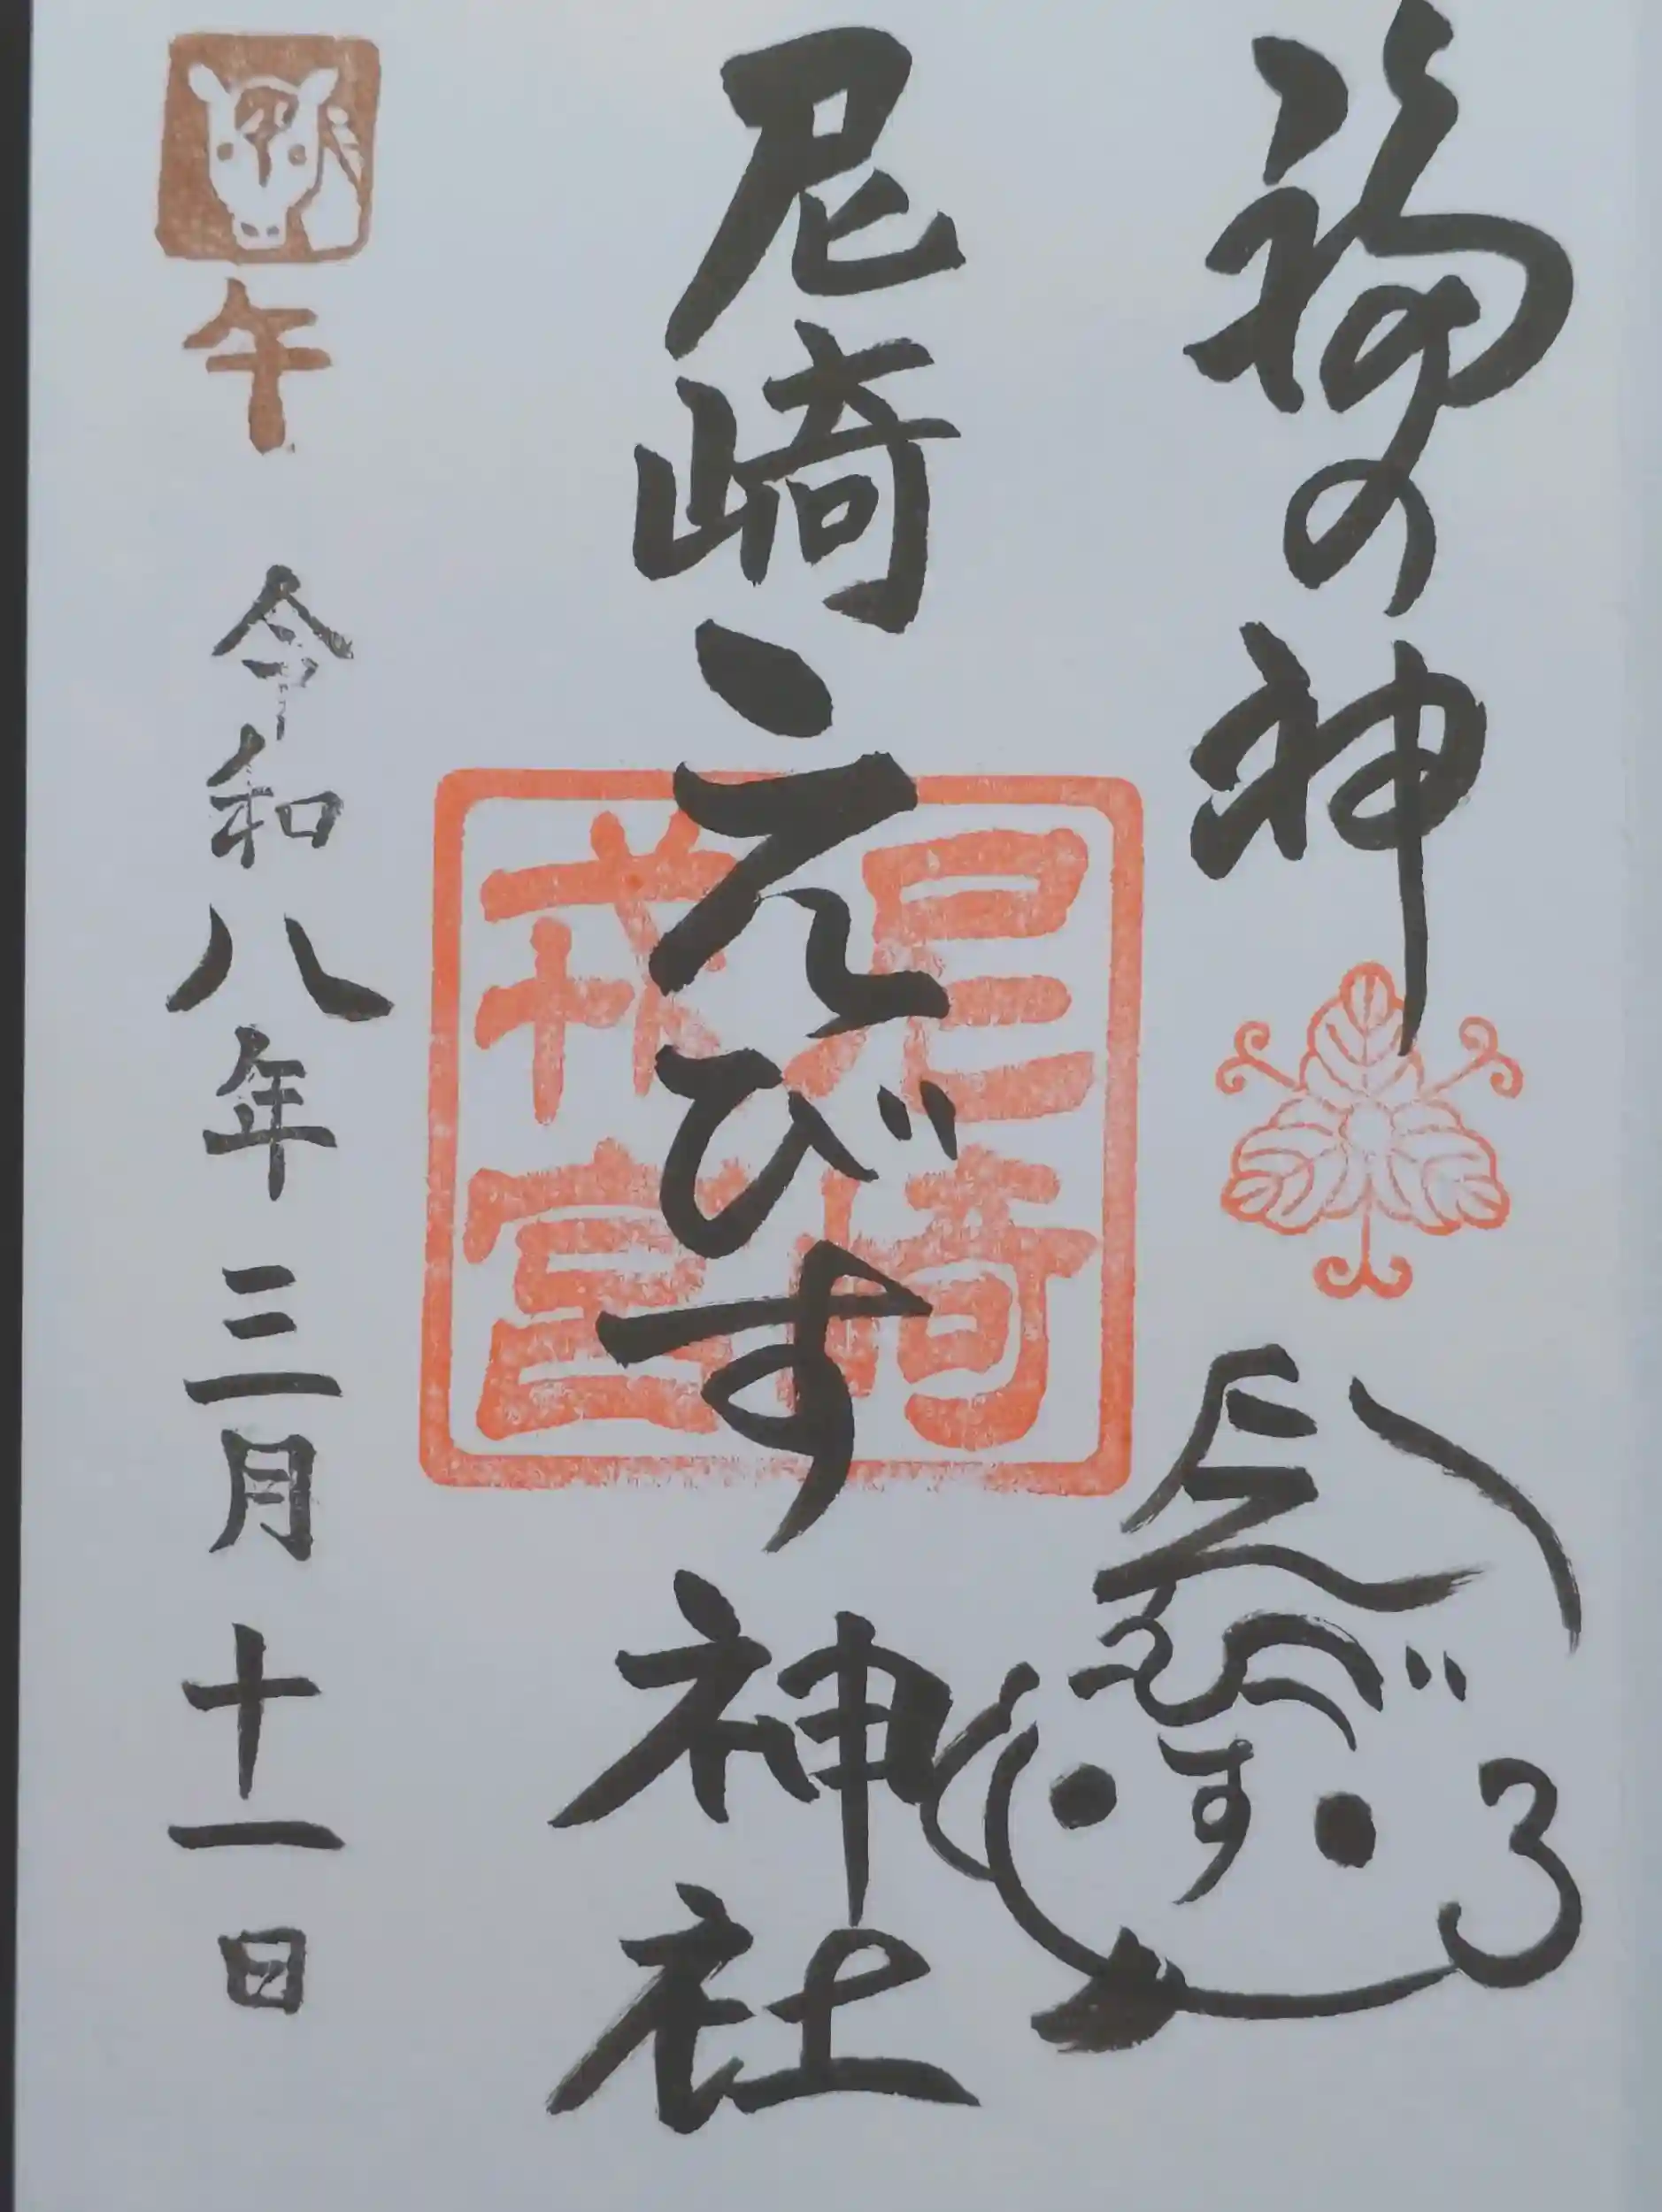 福の神
えびす
尼崎えびす神社
尼崎
戎宮
午
令和八年三月十一日